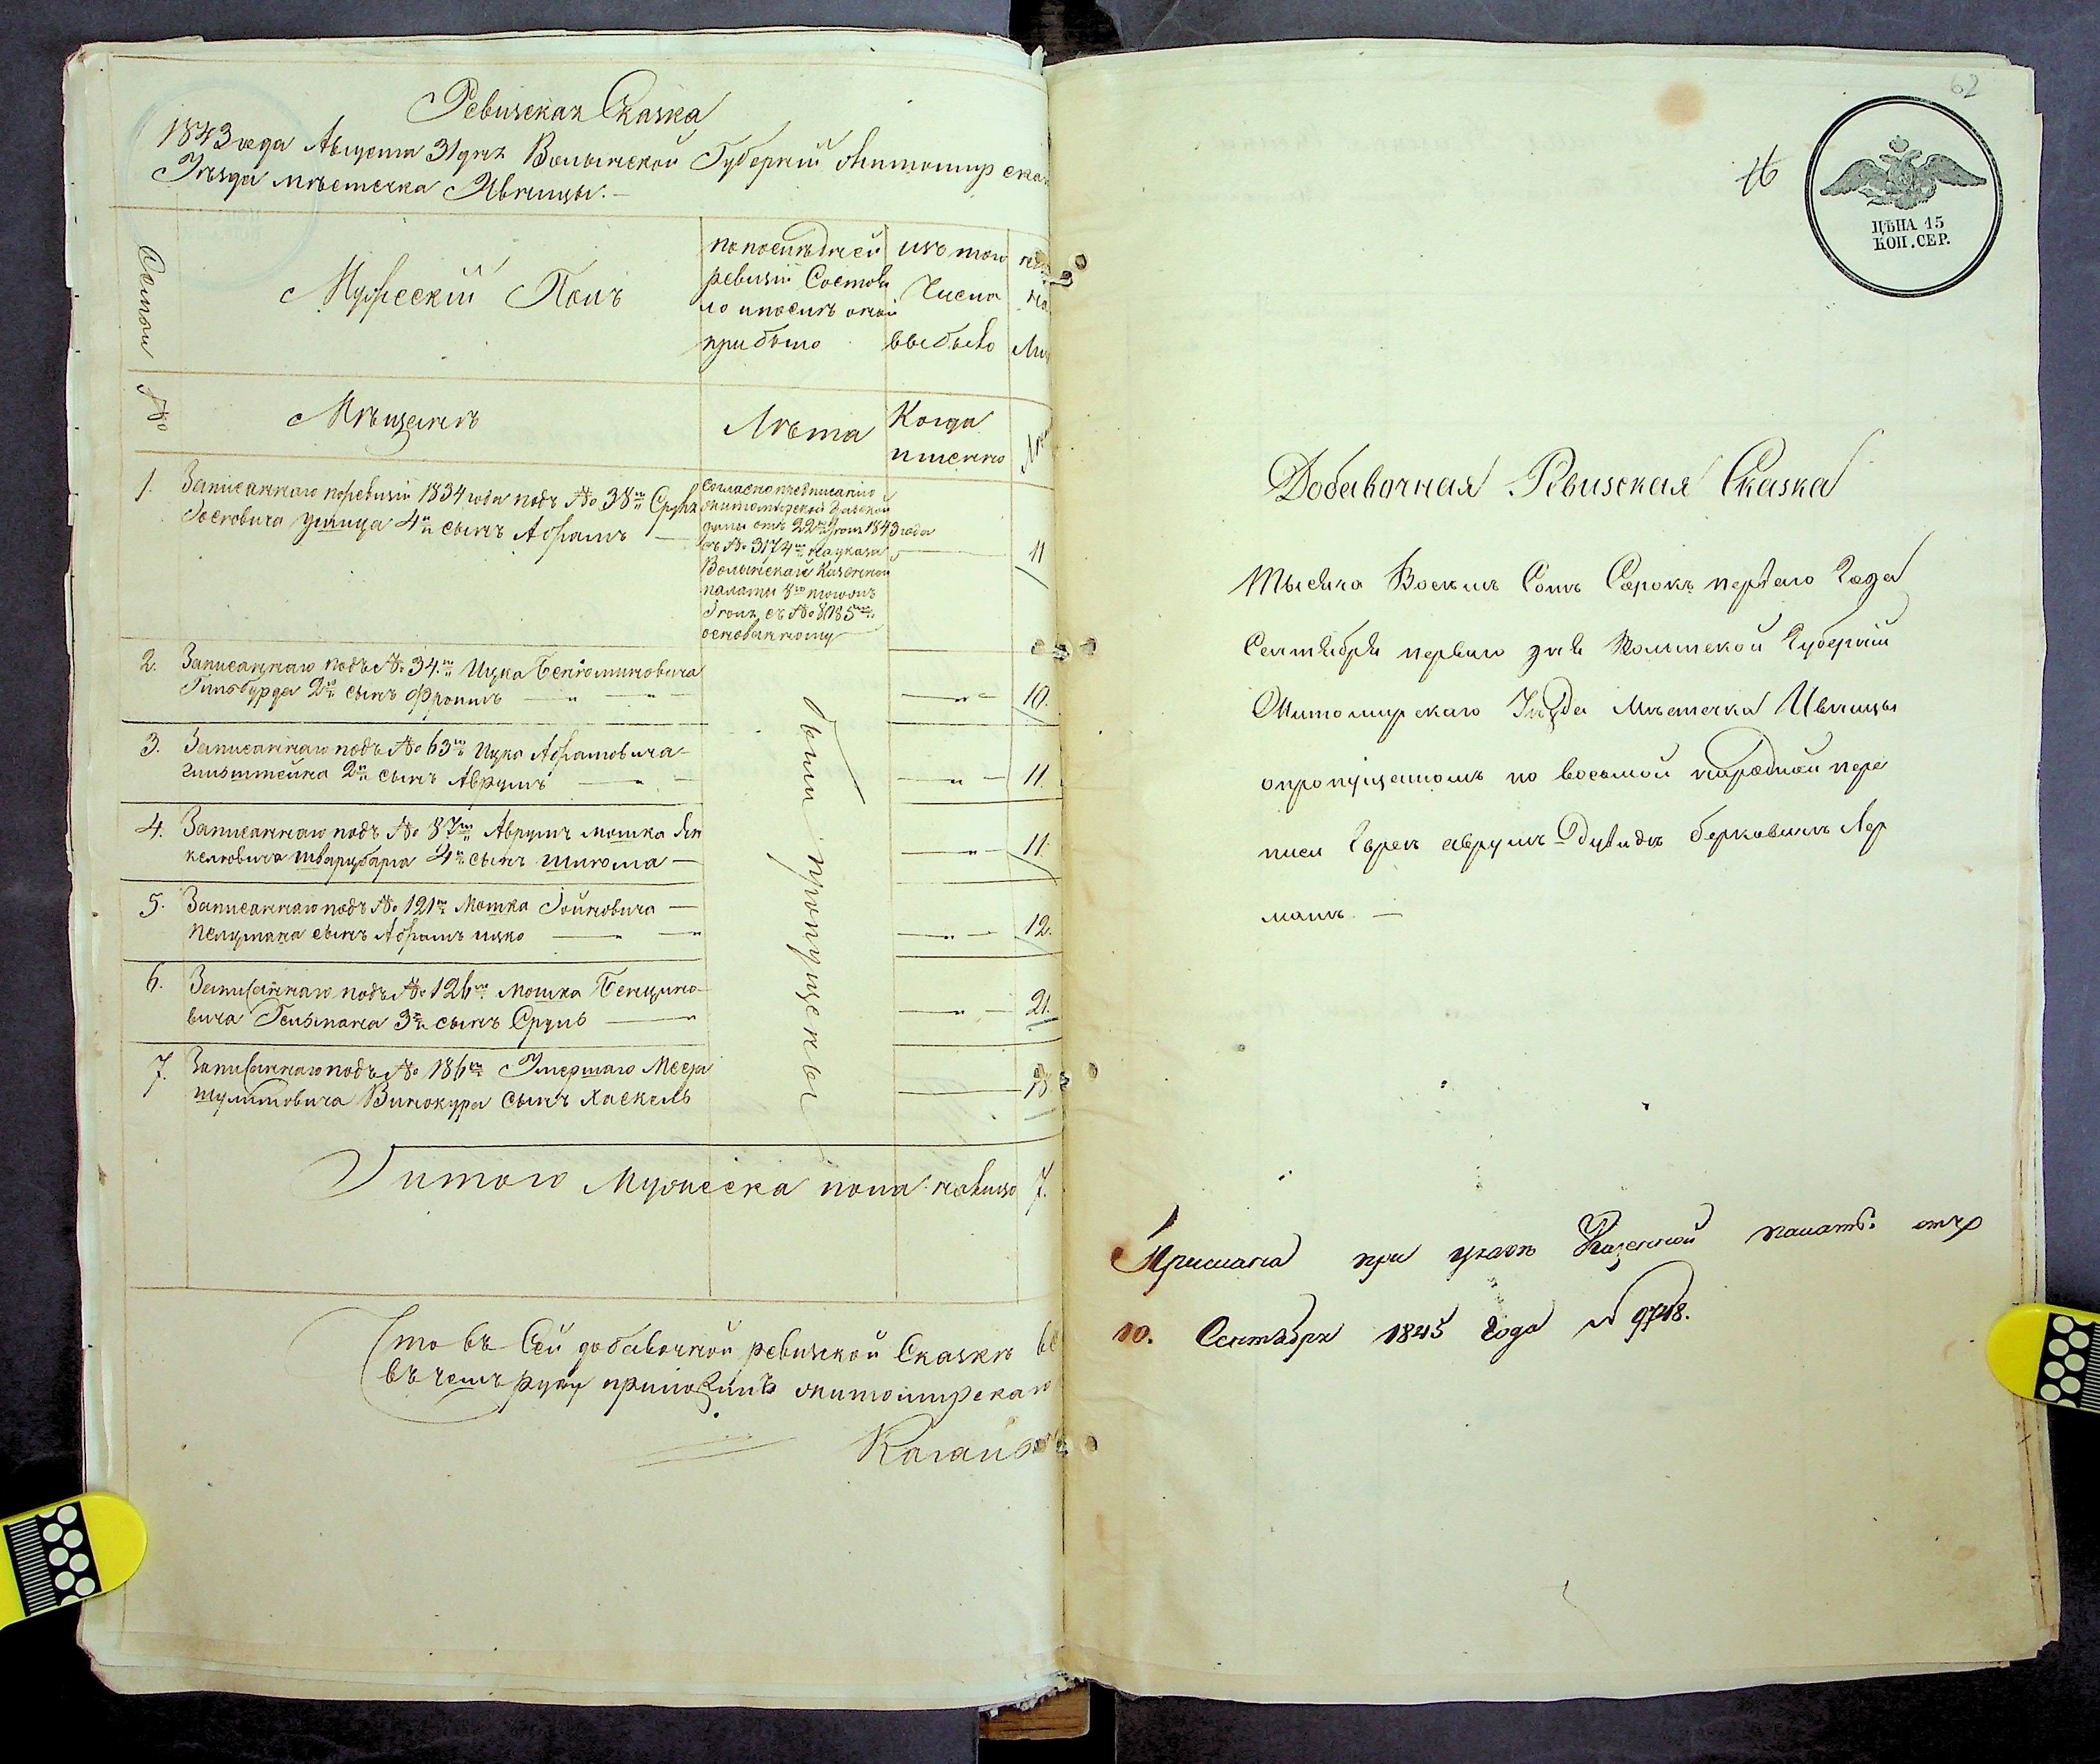 Ревизская Сказка
1843 года Августа 31 дня Волынской Губернии Житомирскаго
Уѣзда мѣстечка Ивницы.
Семьи №
Мужескій Полъ
по послѣдней
ревизіи Состоя
ло и послѣ оной
прибыло
изъ того
Числа
выбыло
Мѣщанъ
Лѣта
Когда
именно
1. Записаннаго поревизіи 1834 года подъ № 38м Сруля
4й сынъ Абрамъ
Согласно предписанію
Житомирской
думы отъ 22го 1843 года
съ № 3174м на указѣ
Волынской Казенной
палаты 8го
съ № 8185м
основанному
11
2. Записаннаго подъ № 34м Ицка Бенюминовича
2й сынъ Фроимъ
10.
3. Записаннаго подъ № 63м Ицка Абрамовича
2й сынъ Аврумъ
11.
4. Записаннаго подъ № 87м Аврумъ мошка Ян
келіовича 4й сынъ шліома
11.
5. Записаннаго подъ № 121м Мошка Іойновича
пелцмана сынъ Абрамъ ицко
12.
6. Записаннаго подъ № 126м Мошка Бенціоно
вича Гельмана 3й сынъ Сруль
21.
7. Записаннаго подъ № 186м Умершаго Меера
шулимовича Винокура сынъ Хаскель
18
были пропущены
Итого Мужеска пола налицо 7.
Что въ Сей добавочной ревизкой Сказкѣ
въ чемъ руку приложилъ житомирскаго
62
16
ЦѢНА 15
КОП. СЕР.
Добавочная Ревизская Сказка
Тысяча Восемь Сотъ Сорокъ первого Года
Сентября первого дня Волынской Губерніи
Житомирскаго Уѣзда Мѣстечка Ивницы
опропущеномъ по восьмой народной пере
писи Евреѣ аврумъ Дувидъ берковичъ Лер
манъ
Прислана при указѣ Казенной палаты отъ
10. Сентября 1845 Года № 9748.